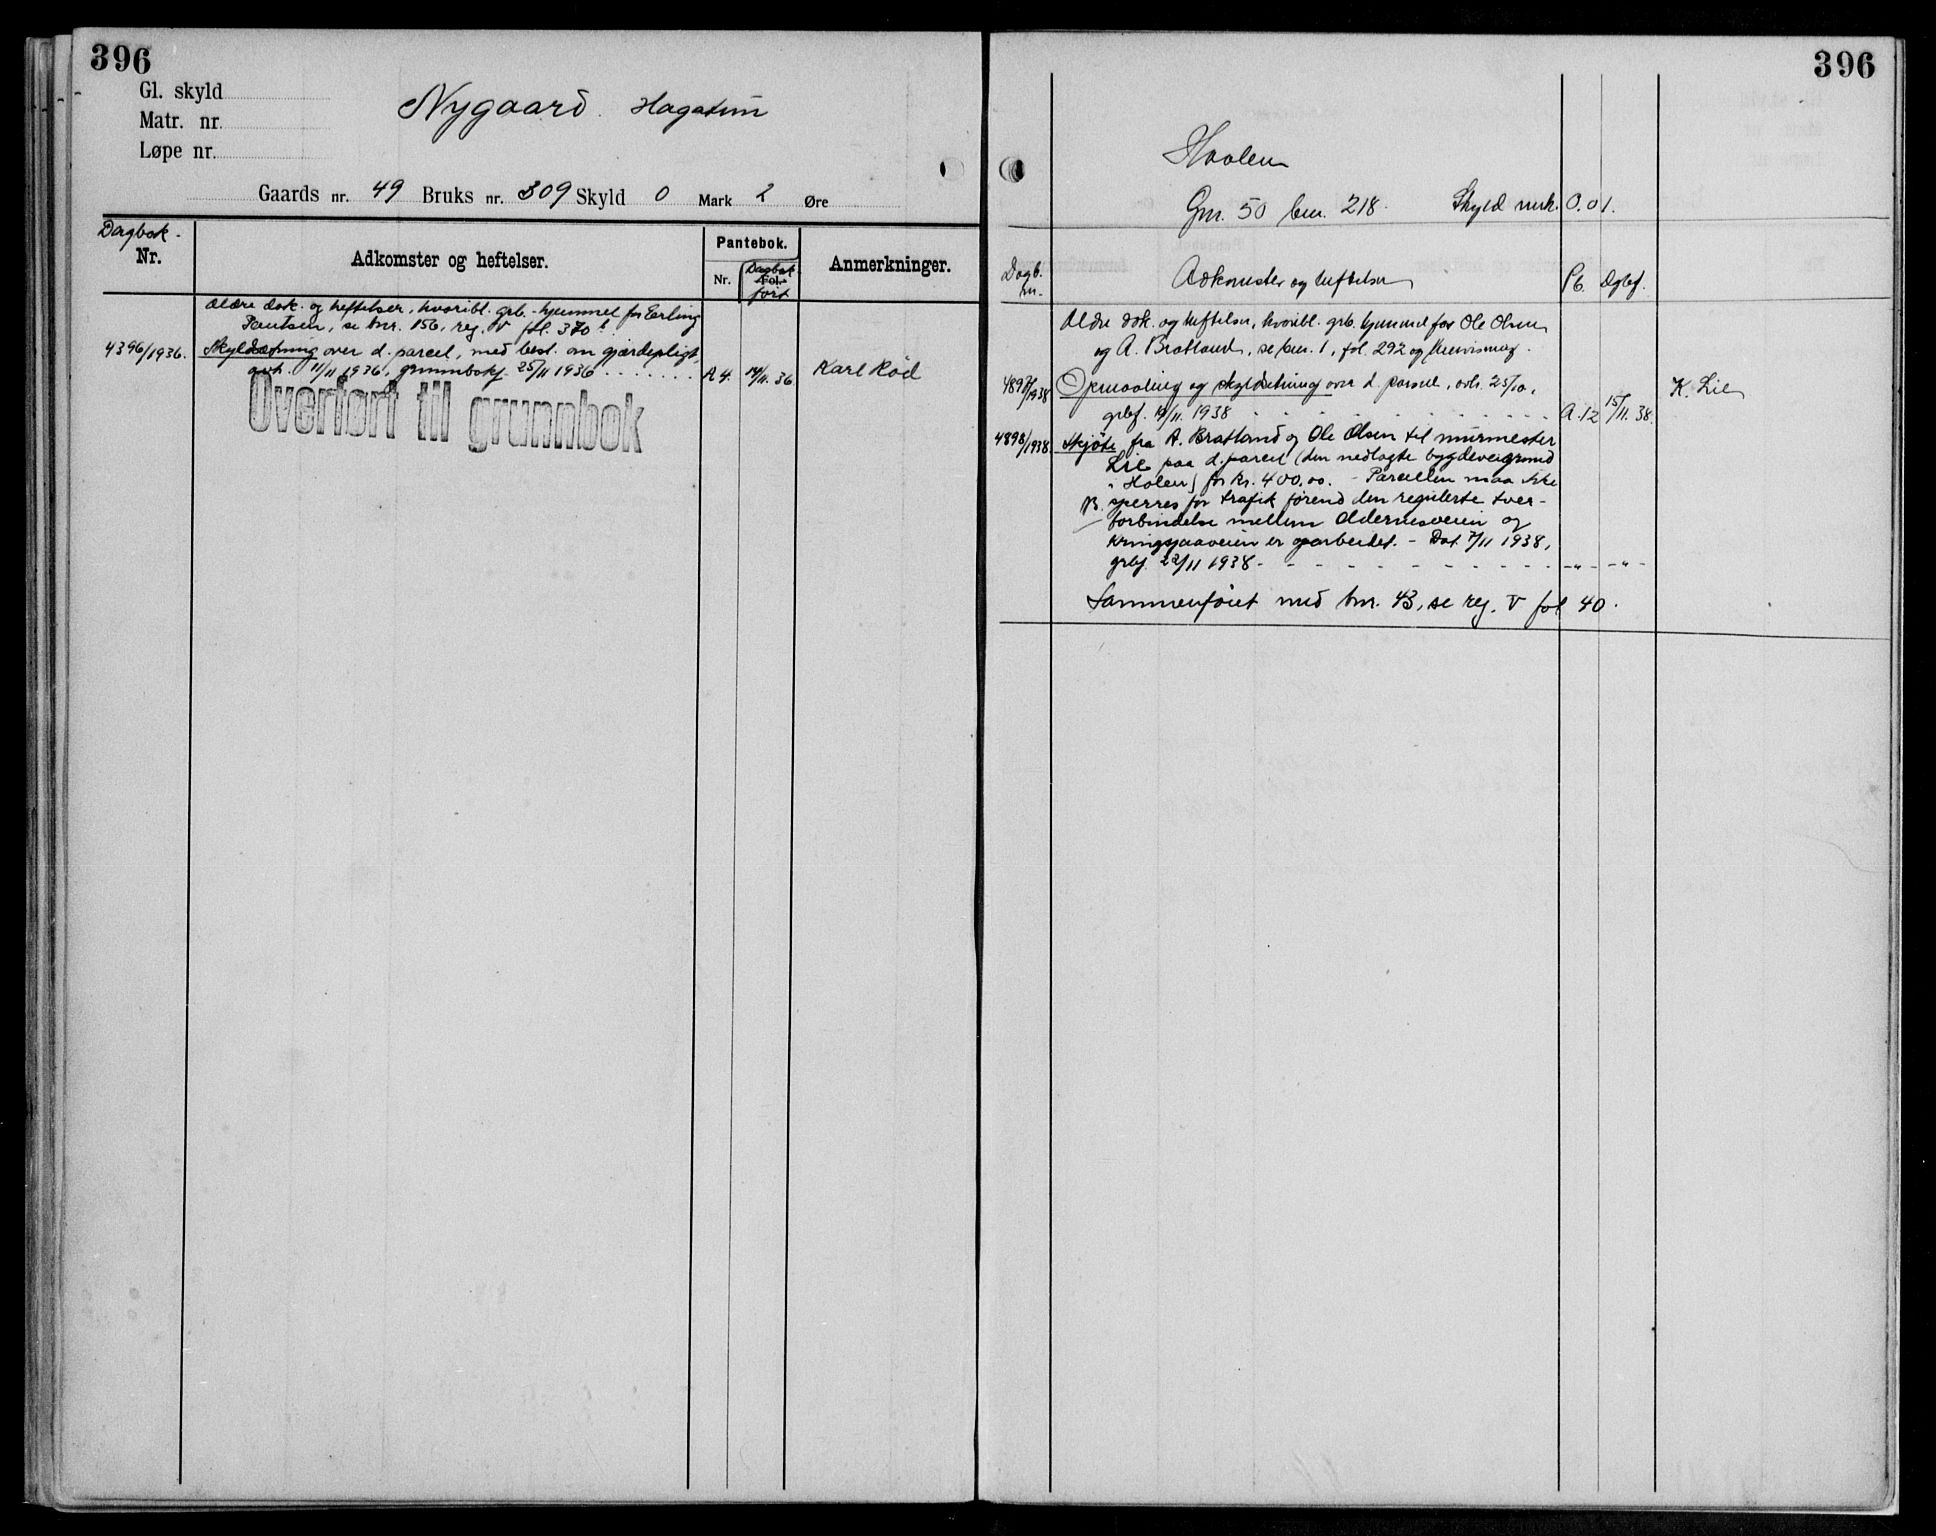 396
Gl. skyld
Matr. nr.
Løpe nr.
Nygaard. Hagatun
Gaards nr. 49 Bruks nr. 309 Skyld 0 Mark 2 Øre
Dagbok.
Nr.
Adkomster og heftelser.
Pantebok.
Nr.
Dagbok
Fol.
ført
Anmerkninger.
Ældre dok. og heftelser, hvoribl. grb. hjemmel for Erling
se bnr. 156, reg. V fol. 370
4396/1936. Skyldsetning over d. parcel, med best. om gjærdepligt,
avh. 11/11 1936, grunnbokf. 25/11 1936 . . . . . . . A 4. 14/11. 36 Karl Röd
Overført til grunnbok
396
Haalen
Gnr. 50 bnr. 218. Skyld mrk. 0.01.
Dagb.
nr.
Adkomster og heftelser
Pb. Dgbf.
Ældre dok. og heftelser, hvoribl. grb. hjemmel for Ole Olsen
og A. Bratland, se bnr. 1, fol. 292 og henvisning.
4897/1938 Opmaaling og skyldsetning over d. parsel, avh. 25/10,
grbf. 19/11. 1938 . . . . . . . . . . A. 12 15/11. 38. K. Lie
4898/1938 Skjöte fra A. Bratland og Ole Olsen til murmester
Lie paa d. parcel (den nedlagte bygdeveigrund
i Holen) for kr. 400,00. - Parcellen maa ikke
NB. sperres for trafik förend den regulerte tver-
forbindelse mellem Oldernesveien og
Kringsjaaveien er oparbeidet. - Dat. 7/11 1938,
grbf. 22/11 1938 - - - - - - - - - - -"- -"-
Sammenföiet med bnr. 43, se reg. V fol 40.